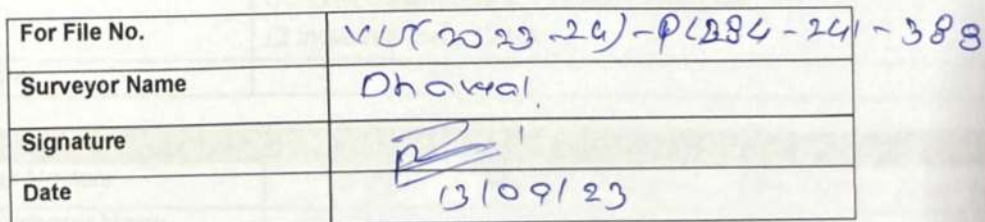 For File No. VLS(2023-24)-PL284-241-388
Surveyor Name Dhawal
Signature
Date 13/09/23